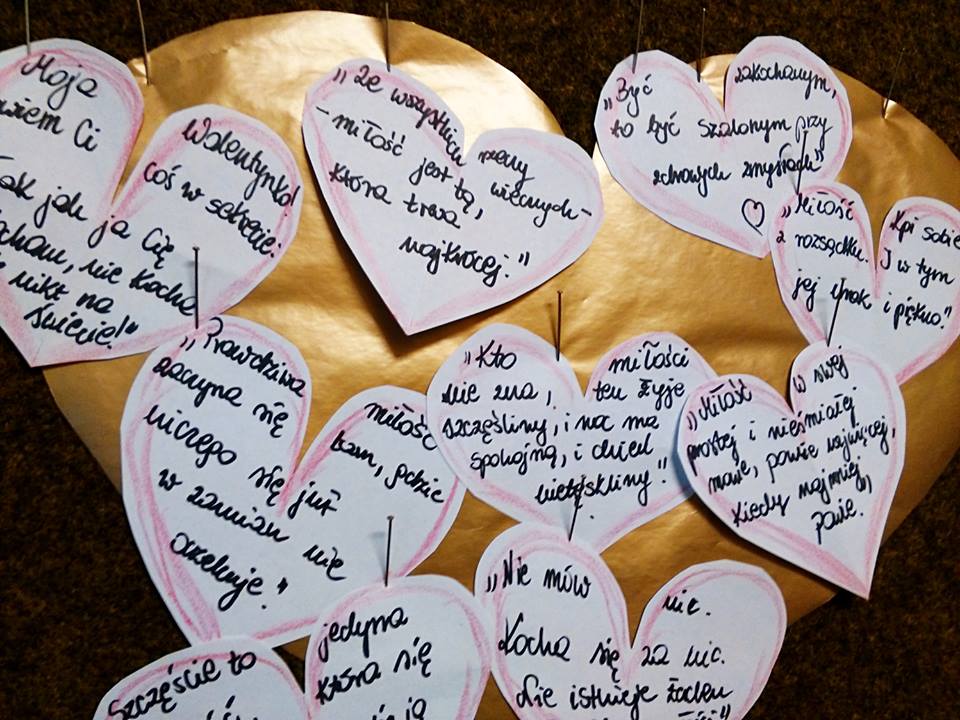 Moja Walentynko!
wiem Ci coś w sekrecie:
Tak jak ja Cię
ocham, nie kocha
nikt na
świecie!"
„Ze wszystkich rzeczy
wiecznych -
- miłość jest tą,
która trwa
najkrócej."
„Być zakochanym,
to być szalonym przy
zdrowych zmysłach"
„Miłość Kpi sobie
z rozsądku. I w tym
jej urok i piękno."
„Prawdziwa miłość
zaczyna się tam, gdzie
niczego się już
w zamian nie
oczekuje."
„Kto miłości
nie zna, ten żyje
szczęśliwy, i noc ma
spokojną, i dzień
nietęskliwy."
„Miłość w swej
prostej i nieśmiałej
mowie, powie najwięcej,
kiedy najmniej
powie."
Szczęście to jedyna
która się
„Nie mów nic.
Kocha się za nic.
Nie istnieje żaden